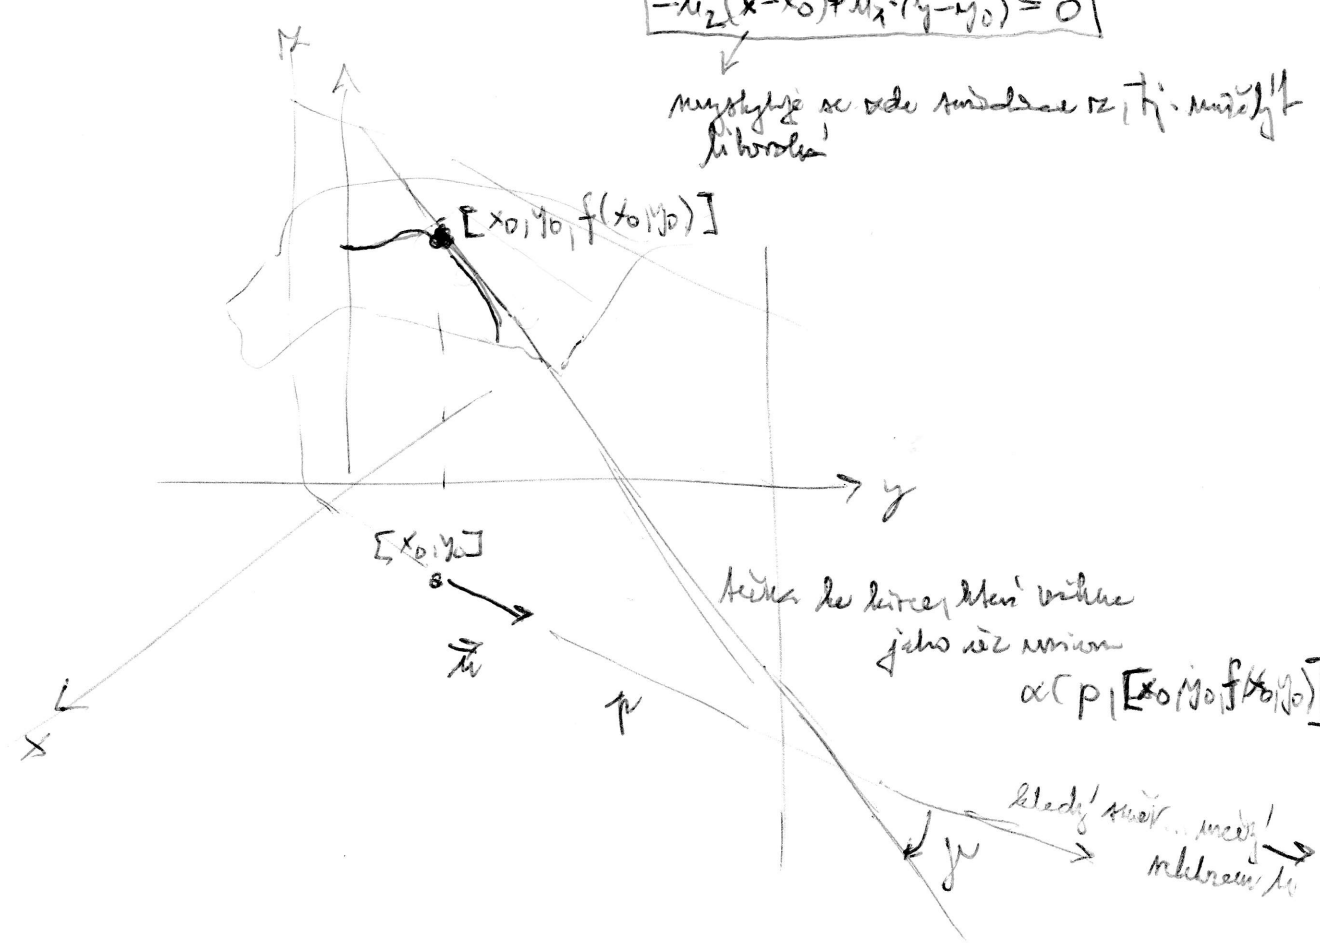 -u₂(x-x₀)+u₁·(y-y₀) = 0
nevyskytuje se zde souřadnice z, tj. může být
libovolná
z
[x₀,y₀,f(x₀,y₀)]
y
[x₀,y₀]
tečna ke křivce, která vznikne
jako řez rovinou
u⃗
p
α(p,[x₀,y₀,f(x₀,y₀)]
x
kladný směr... určený
vektorem u⃗